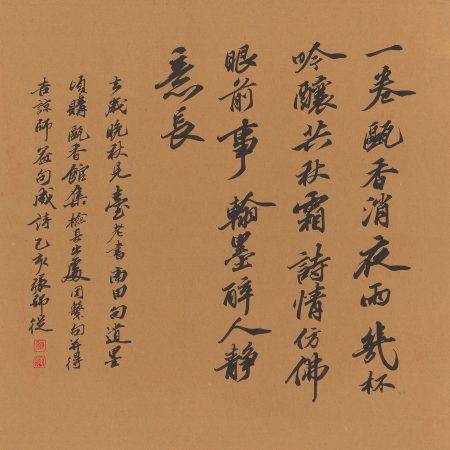 一卷甌香消夜雨幾杯
吟釀共秋霜詩情仿佛
眼前事翰墨醉人靜
意長
去歲晚秋見臺老書南田句道
頃購甌香館集檢其出處因繫句并得
吉諒師益句成詩己亥張